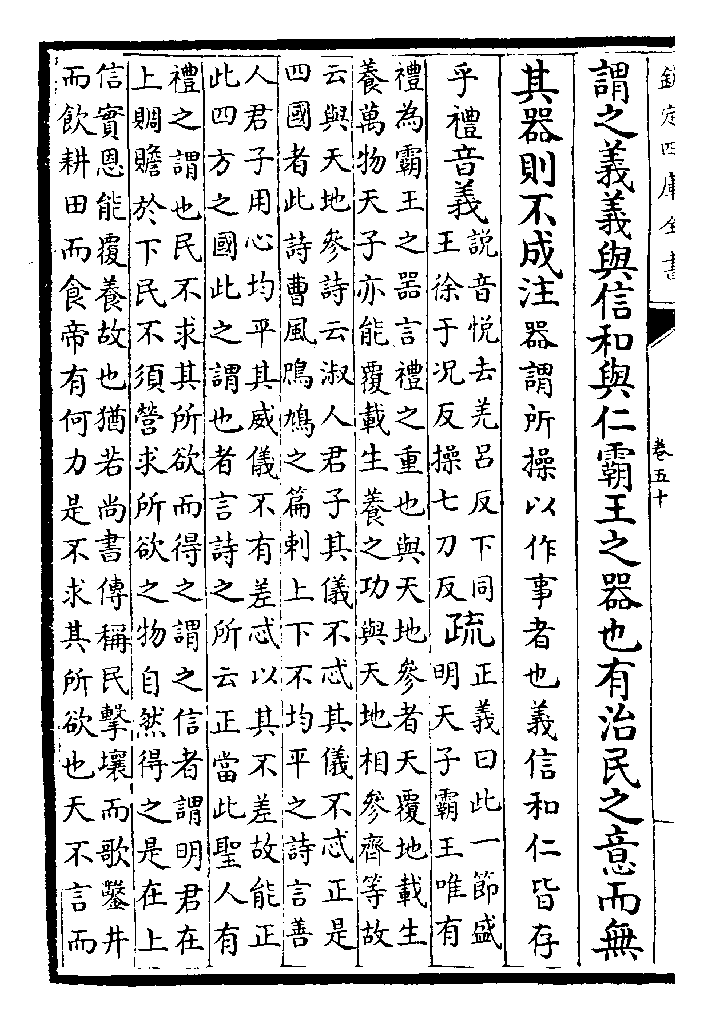 欽定四庫全書
卷五十
謂之義義與信和與仁霸王之器也有治民之意而無
其器則不成注器謂所操以作事者也義信和仁皆存
乎禮音義
說音悅去羌呂反下同
王徐于況反操七刀反
疏
正義曰此一節盛
明天子霸王唯有
禮為霸王之器言禮之重也與天地參者天覆地載生
養萬物天子亦能覆載生養之功與天地相參齊等故
云與天地參詩云淑人君子其儀不忒其儀不忒正是
四國者此詩曹風鳲鳩之篇刺上下不均平之詩言善
人君子用心均平其威儀不有差忒以其不差故能正
此四方之國此之謂也者言詩之所云正當此聖人有
禮之謂也民不求其所欲而得之謂之信者謂明君在
上賙贍於下民不須營求所欲之物自然得之是在上
信實恩能覆養故也猶若尚書傳稱民擊壤而歌鑿井
而飲耕田而食帝有何力是不求其所欲也天不言而